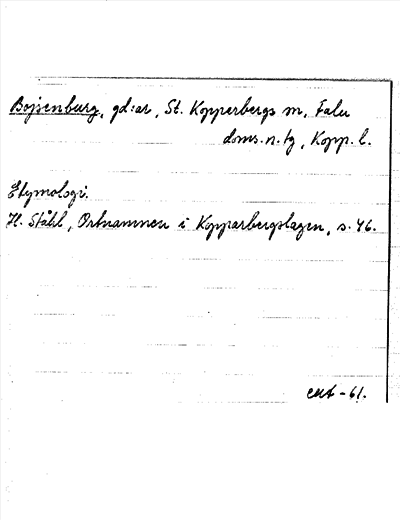 Bojsenburg, gd:ar, St. Kopperbergs sn, Falu
doms.n. tg, Kopp. l.
Etymologi.
H. Ståhl, Ortnamnen i Kopparbergslagen, s. 46.
-61.